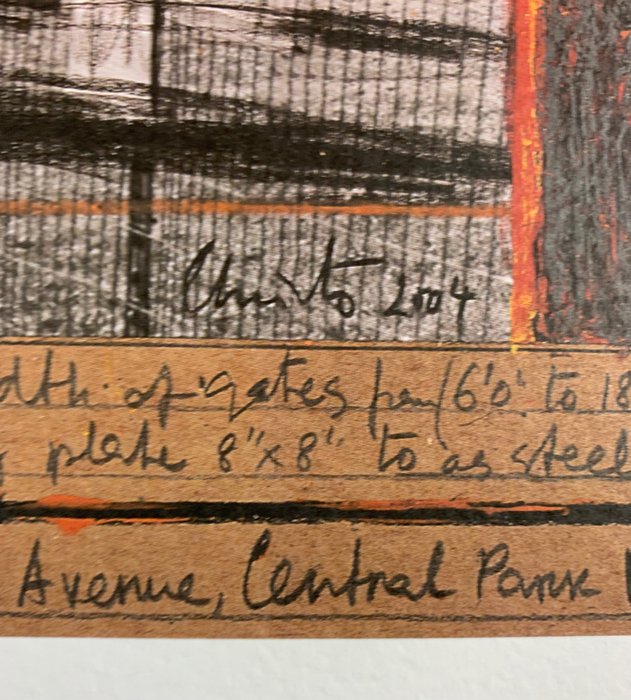 Christo 2004
dth of gates (6'0" to 18
plate 8"x8" to as steel
Avenue, Central Park